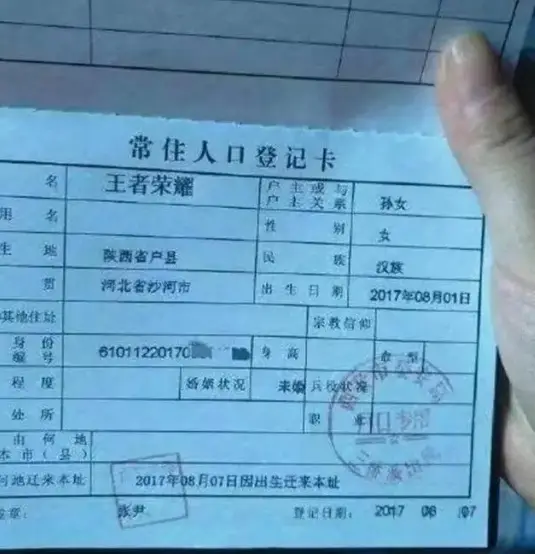 常住人口登记卡
名 王者荣耀 户主或与户主关系 孙女
用名 性别 女
生地 陕西省户县 民族 汉族
贯 河北省沙河市 出生日期 2017年08月01日
其他住址 宗教信仰
身份编号 6101122017 身高 血型
程度 婚姻状况 未婚 兵役状况
处所 职业
由何地本市(县)
何地迁来本址 2017年08月07日因出生迁来本址
签章: 张尹 登记日期: 2017 08 07